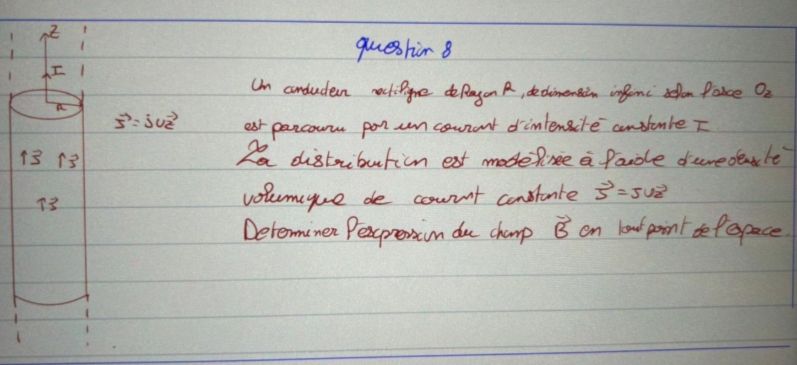 question 8
Z
I
R
J⃗ = J uz⃗
↑J⃗ ↑J⃗
↑J⃗
Un conducteur rectiligne de Rayon R, de dimension infini selon l'axe Oz
est parcouru par un courant d'intensité constante I.
La distribution est modélisée à l'aide d'une densité
volumique de courant constante J⃗ = J uz⃗
Determiner l'expression du champ B⃗ en tout point de l'espace.